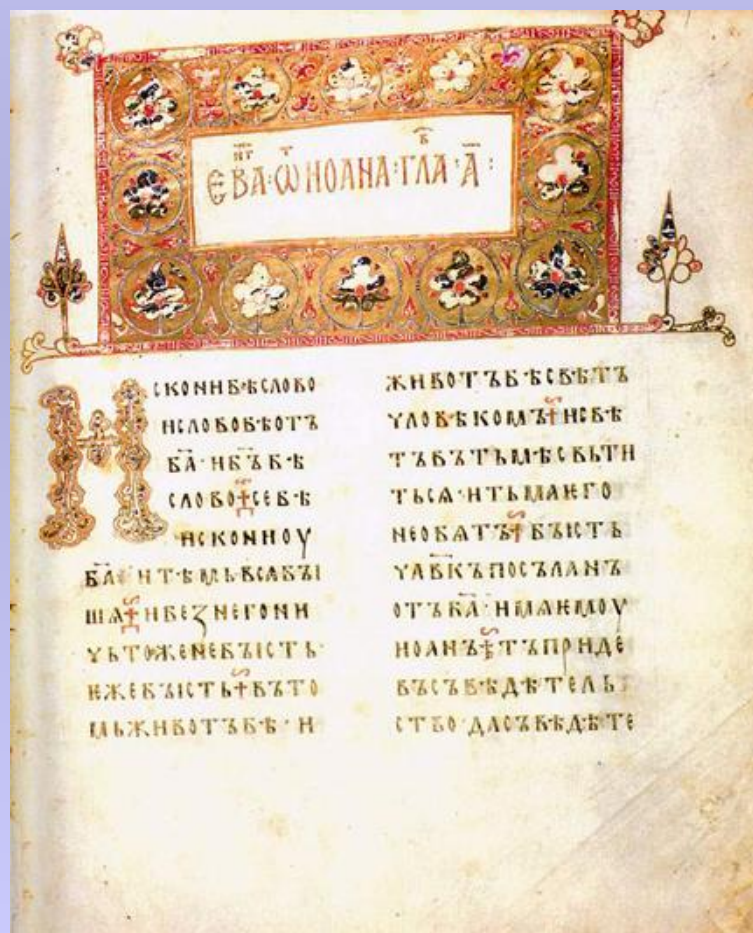 ЕВА҃·Ѿ ИОАНА·ГЛА·А҃:
ИСКОНИБѢСЛОВО
ИСЛОВОБѢОТЪ
БА҃·ИБЪ҃БѢ
СЛОВО·СЕБѢ
ИСКОНИОУ
БА҃·ИТѢМЬВСЯБЪІ
ШѦ·ИБЕЗНЕГОНИ
ЧЬТОЖЕНЕБЪІСТЬ·
ЕЖЕБЪІСТЬ·ВЪТО
МЬЖИВОТЪБѢ·И
ЖИВОТЪБѢСВѢТЪ
ЧЛОВѢКОМЪ·ИСВѢ
ТЪВЪТЬМѢСВЬТИ
ТЬСѦ·ИТЬМАѤГО
НЕОБѦТЪ·БЪІСТЬ
ЧЛ҃ВКЪПОСЪЛАНЪ
ОТЪБА҃·ИМѦѤМОУ
ИОАНЪ·ТЪПРИДЕ
ВЪСЪВѢДѢТЕЛЬ
СТВО·ДАСЪВѢДѢТЕ